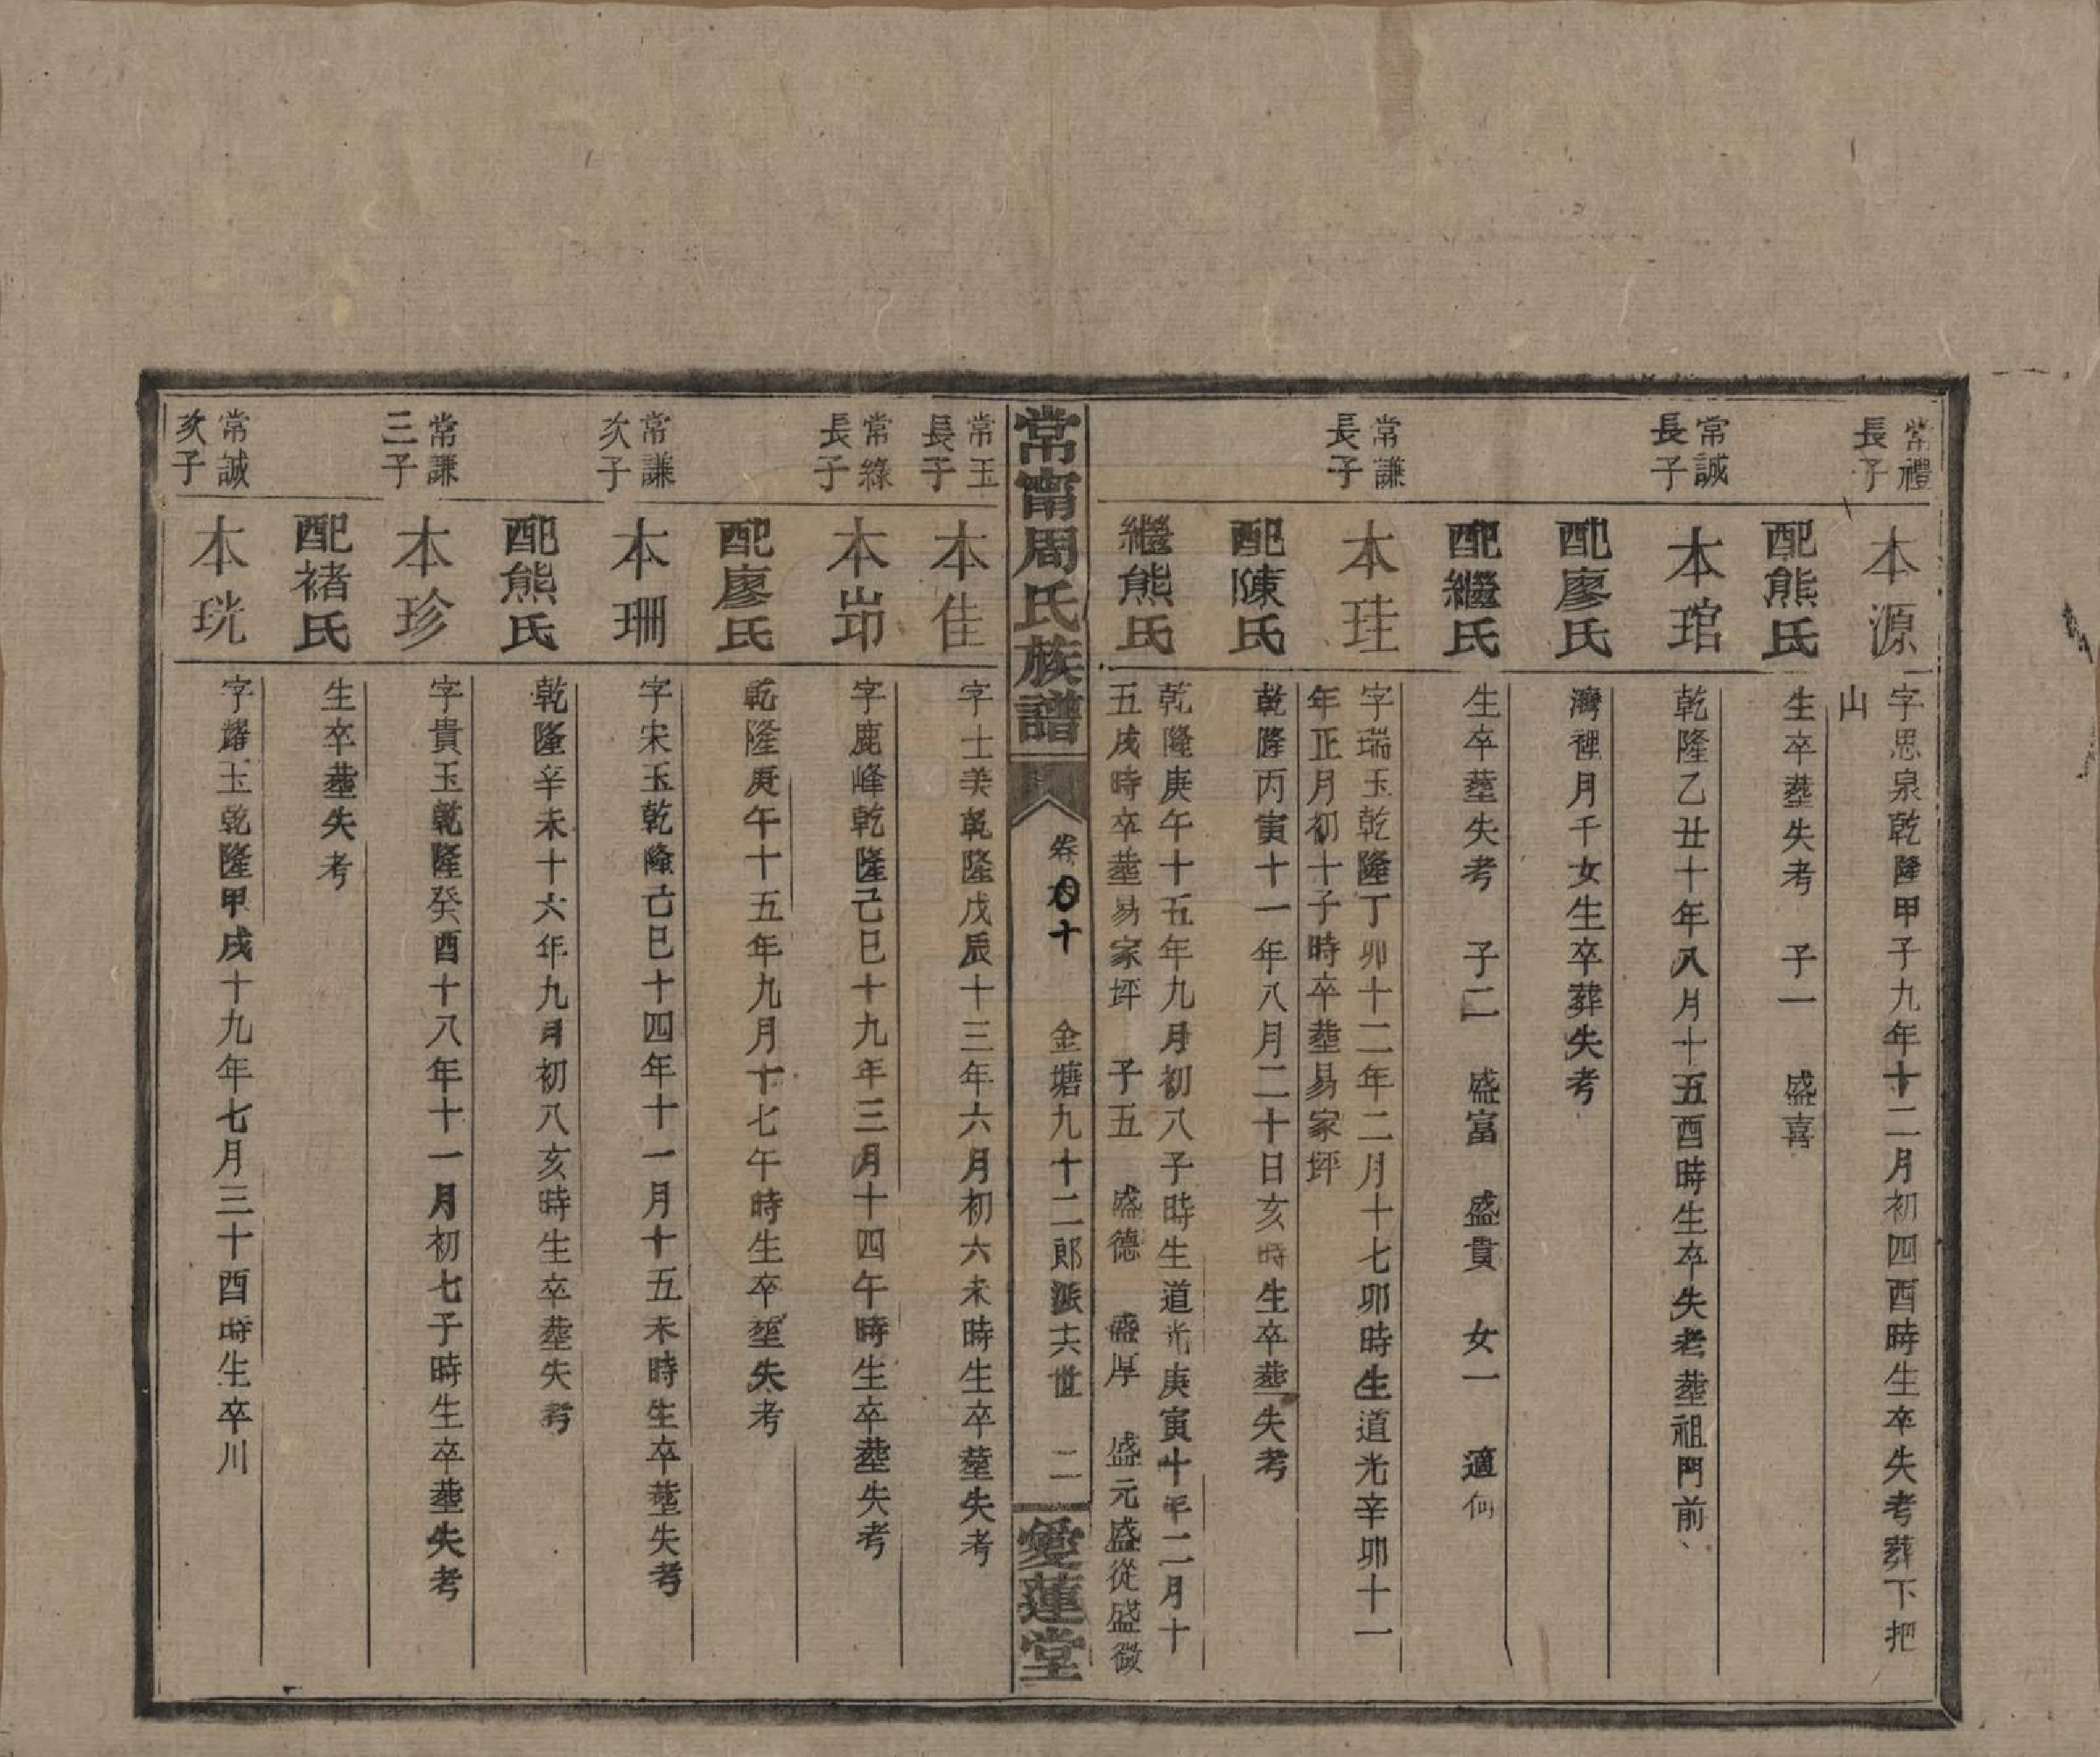 常禮
長子
本源
字思泉乾隆甲子九年十二月初四酉時生卒失考葬下把
山
配熊氏
生卒塟失考　子一　盛喜
常誠
長子
本琯
乾隆乙丑十年八月十五酉時生卒失考塟祖門前
配廖氏
灣裡月千女生卒葬失考
配繼氏
生卒塟失考　子二　盛富　盛貴　女一　適何
常謙
長子
本珪
字瑞玉乾隆丁卯十二年二月十七卯時生道光辛卯十一
年正月初十子時卒塟易家坪
配陳氏
乾隆丙寅十一年八月二十日亥時生卒塟失考
繼熊氏
乾隆庚午十五年九月初八子時生道光庚寅十年二月十
五戌時卒塟易家坪　子五　盛德　盛厚　盛元盛從盛微
常甯周氏族譜
卷　十
金塘九十二郎派十六世　二
愛蓮堂
常玉
長子
本佳
字士美乾隆戊辰十三年六月初六未時生卒塟失考
常綠
長子
本峁
字鹿峰乾隆己巳十九年三月十四午時生卒塟失考
配廖氏
乾隆庚午十五年九月十七午時生卒塟失考
常謙
次子
本珊
字宋玉乾隆己巳十四年十一月十五未時生卒塟失考
配熊氏
乾隆辛未十六年九月初八亥時生卒塟失考
常謙
三子
本珍
字貴玉乾隆癸酉十八年十一月初七子時生卒塟失考
配褚氏
生卒塟失考
常誠
次子
本珖
字耀玉乾隆甲戌十九年七月三十酉時生卒川